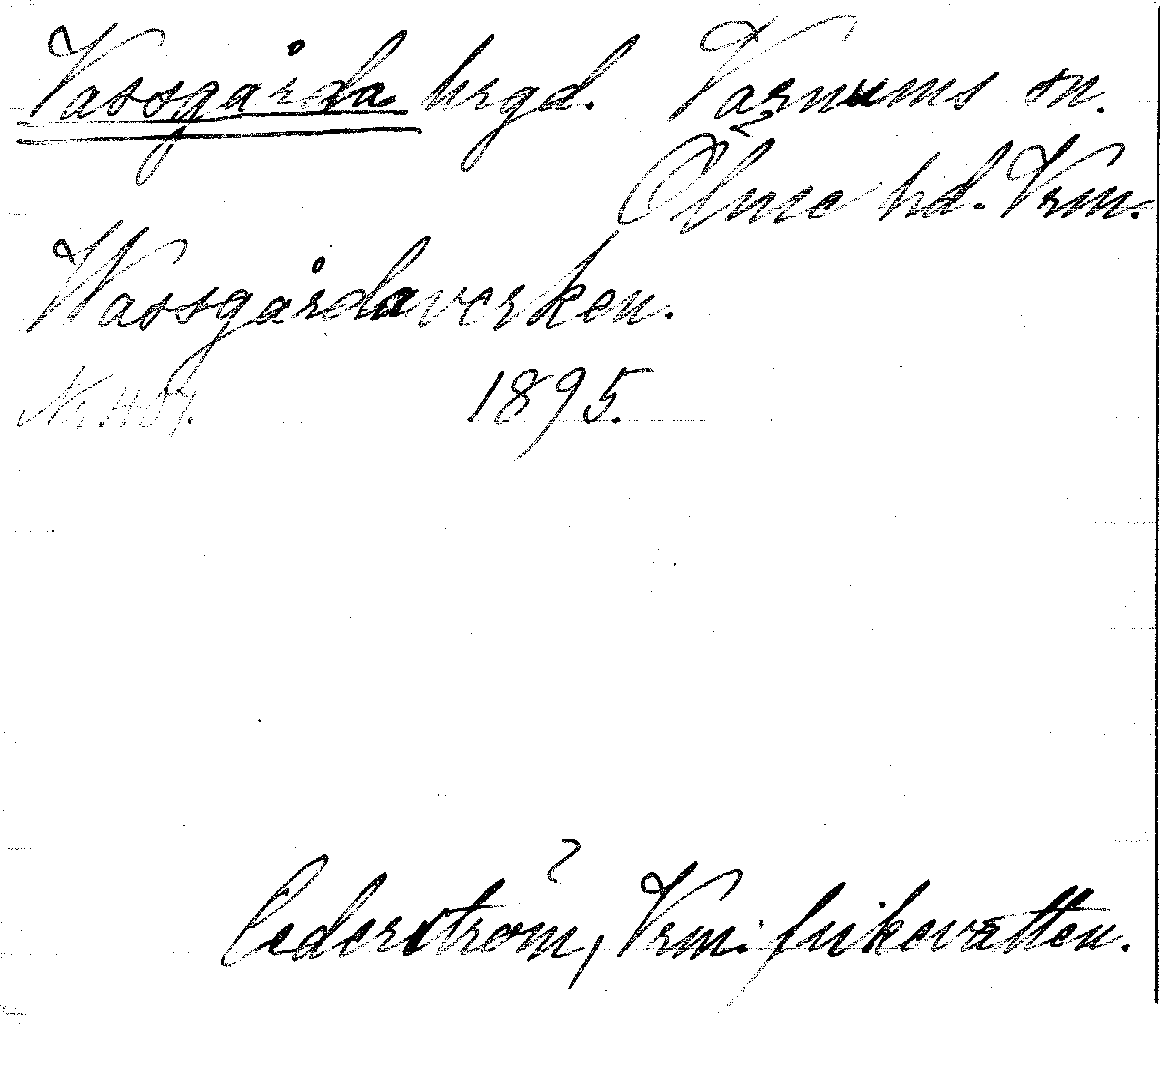 Vassgårda hrgd. Varnums sn.
Ölme hd. Vrm.
Wassgårdaverken.
Nr. 407. 1895.
Cederström, Vrm. fiskevatten.